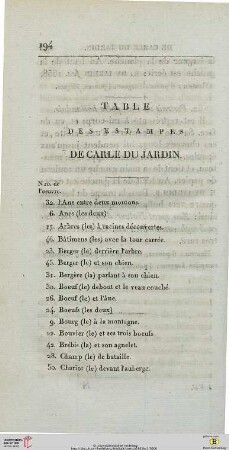 194
TABLE
DES ESTAMPES
DE CARLE DU JARDIN.
Nos. de
l'oeuvre.
32. L'Ane entre deux moutons.
6. Anes (les deux)
17. Arbres (les) à racines découvertes.
46. Bâtimens (les) avec la tour carrée.
23. Berger (le) derrière l'arbre.
45. Berger (le) et son chien.
31. Bergère (la) parlant à son chien.
30. Boeuf (le) debout et le veau couché.
26. Boeuf (le) et l'âne.
24. Boeufs (les deux)
9. Bourg (le) à la montagne.
20. Bouvier (le) et ses trois boeufs
42. Brébis (la) et son agnelet.
28. Champ (le) de bataille.
50. Chariot (le) devant l'auberge.